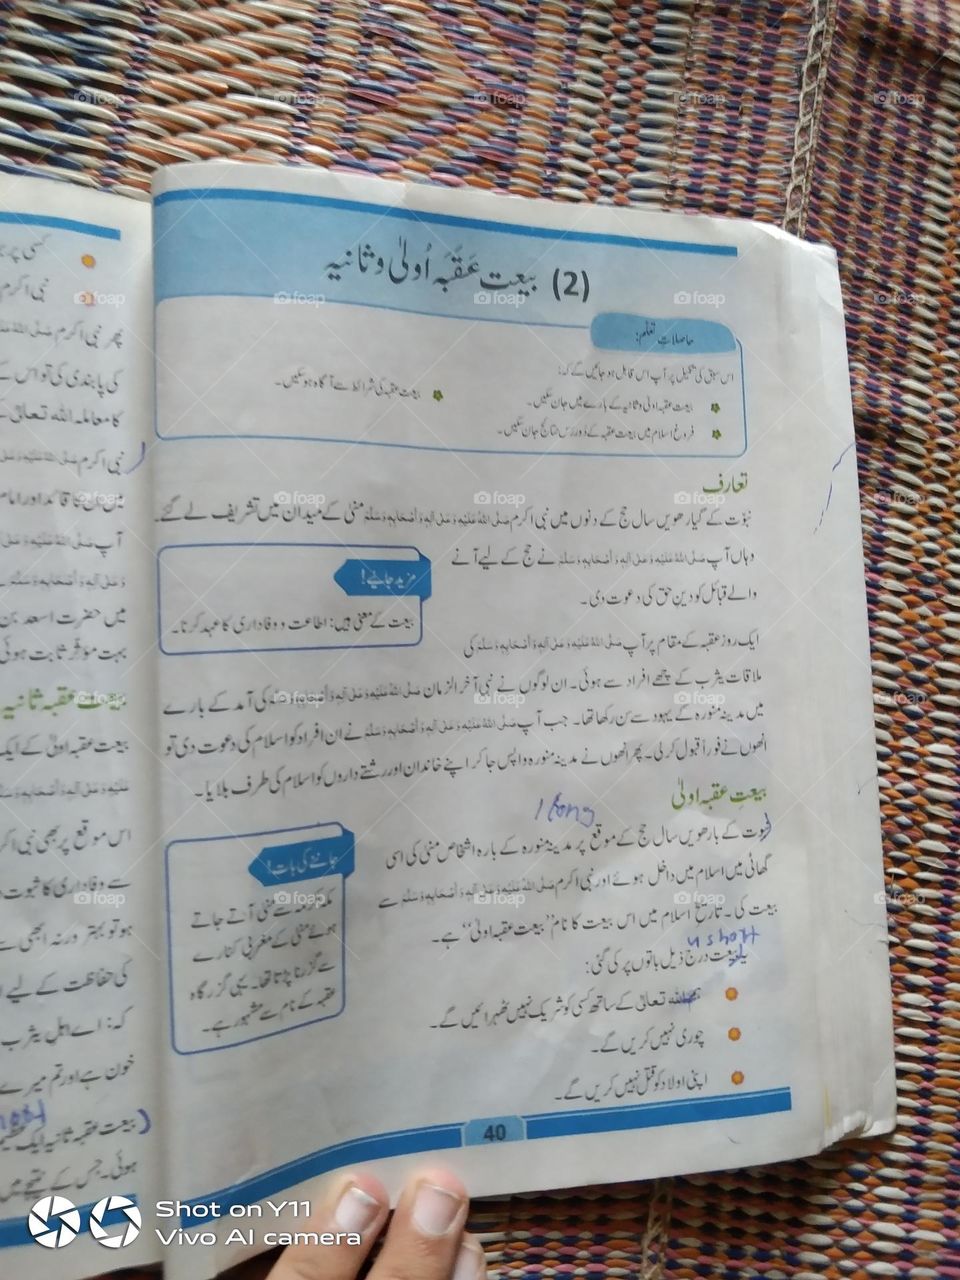 (2) بیعت عَقَبَہ اُولیٰ و ثانیہ
حاصلاتِ تعلّم:
اس سبق کی تکمیل پر آپ اس قابل ہو جائیں گے کہ:
بیعت عقبہ اولیٰ و ثانیہ کے بارے میں جان سکیں۔
بیعت عقبہ کی شرائط سے آگاہ ہو سکیں۔
فروغِ اسلام میں بیعت عقبہ کے دُور رَس نتائج جان سکیں۔
تعارف
نبوّت کے گیارھویں سال حج کے دنوں میں نبی اکرم صَلَّی اللّٰهُ عَلَیْهِ وَ عَلٰی اٰلِهٖ وَ اَصْحَابِهٖ وَ سَلَّمَ منیٰ کے میدان میں تشریف لے گئے۔
وہاں آپ صَلَّی اللّٰهُ عَلَیْهِ وَ عَلٰی اٰلِهٖ وَ اَصْحَابِهٖ وَ سَلَّمَ نے حج کے لیے آنے
والے قبائل کو دینِ حق کی دعوت دی۔
مزید جانیے!
بیعت کے معنی ہیں: اطاعت و وفاداری کا عہد کرنا۔
ایک روز عقبہ کے مقام پر آپ صَلَّی اللّٰهُ عَلَیْهِ وَ عَلٰی اٰلِهٖ وَ اَصْحَابِهٖ وَ سَلَّمَ کی
ملاقات یثرب کے چھے افراد سے ہوئی۔ ان لوگوں نے نبی آخر الزمان صَلَّی اللّٰهُ عَلَیْهِ وَ عَلٰی اٰلِهٖ وَ اَصْحَابِهٖ وَ سَلَّمَ کی آمد کے بارے
میں مدینہ منورہ کے یہود سے سن رکھا تھا۔ جب آپ صَلَّی اللّٰهُ عَلَیْهِ وَ عَلٰی اٰلِهٖ وَ اَصْحَابِهٖ وَ سَلَّمَ نے ان افراد کو اسلام کی دعوت دی تو
انھوں نے فوراً قبول کر لی۔ پھر انھوں نے مدینہ منورہ واپس جا کر اپنے خاندان اور رشتے داروں کو اسلام کی طرف بلایا۔
بیعت عقبہ اولیٰ
نبوت کے بارھویں سال حج کے موقع پر مدینہ منورہ کے بارہ اشخاص منیٰ کی اسی
گھاٹی میں اسلام میں داخل ہوئے اور نبی اکرم صَلَّی اللّٰهُ عَلَیْهِ وَ عَلٰی اٰلِهٖ وَ اَصْحَابِهٖ وَ سَلَّمَ سے
بیعت کی۔ تاریخ اسلام میں اس بیعت کا نام "بیعت عقبہ اولیٰ" ہے۔
یہ بیعت درج ذیل باتوں پر کی گئی:
ہم اللہ تعالیٰ کے ساتھ کسی کو شریک نہیں ٹھہرائیں گے۔
چوری نہیں کریں گے۔
اپنی اولاد کو قتل نہیں کریں گے۔
جاننے کی بات!
مکہ مکرمہ سے منیٰ آتے جاتے
ہوئے منیٰ کے مغربی کنارے
سے گزرنا پڑتا تھا۔ یہی گزر گاہ
عقبہ کے نام سے مشہور ہے۔
40
نبی اکرم
پھر نبی اکرم
کی پابندی کی تو اس کے
کا معاملہ اللہ تعالیٰ کے
نبی اکرم
میں ان کا قائد اور امام
آپ
میں حضرت اسعد بن
بہت مؤثر ثابت ہوئی
بیعت عقبہ ثانیہ
بیعت عقبہ اولیٰ کے ایک
اس موقع پر بھی نبی اکرم
سے وفاداری کا ثبوت
ہو تو بہتر ورنہ ابھی سے
کی حفاظت کے لیے
کہ: اے اہلِ یثرب
خون ہے اور تم میرے
بیعت عقبہ ثانیہ ایک عظیم
ہوئی۔ جس کے نتیجے میں
Shot on Y11
Vivo AI camera
foap